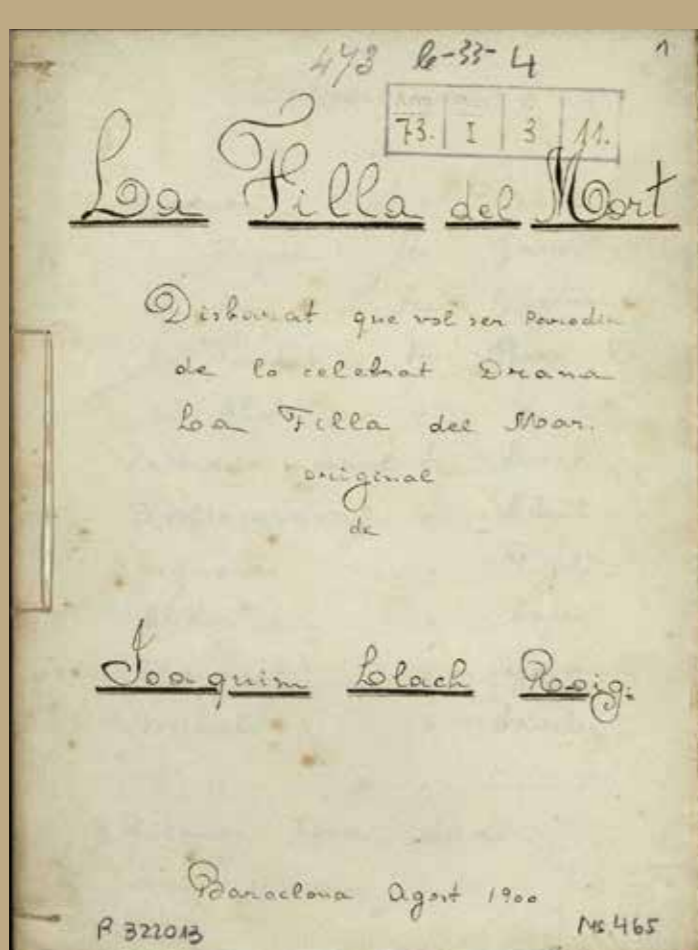 473 le-33-4
1
73. I 3 11.
La Filla del Mort
Disbarat que vol ser Parodia
de lo celebrat Drama
La Filla del Mar.
original
de
Joaquim Llach Roig.
Barcelona Agost 1900
R 322013
Ms 465